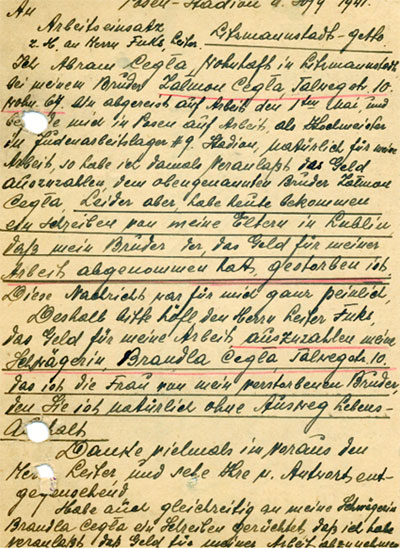 Posen-Stadion 4. July 1941.
An
Arbeitseinsatz Litzmannstadt-Getto
z. H. an Herrn Fuks, Leiter.
Ich Abram Cegla, Wohnhaft in Litzmannstadt
bei meinem Brüder Zalmon Cegla, Talweg Str. 10.
Wohn. 64, bin abgereist auf Arbeit den 1ten Mai, und
mich in Posen auf Arbeit, als
in Judenarbeitslager #9, Stadion, natürlich für meine
Arbeit, so habe ich damals veranlaßt das Geld
auszuzahlen, dem obengenannten Brüder Zalmon
Cegla. Leider aber, habe heute bekommen
ein schreiben von meine Eltern in Lublin
daß mein Brüder der, das Geld für meiner
Arbeit abgenommen hat, gestorben ist.
Diese Nachricht war für mich ganz peinlich.
Deshalb bitte höfl. den Herrn Leiter Fuks,
das Geld für meine Arbeit auszuzahlen meine
Schwägerin, Brandla Cegla, Talweg Str. 10,
das ist die Frau von mein verstorbenen Brüder,
den Sie ist natürlich ohne Ausweg Lebens-
Danke vielmals im voraus den
Leiter, und sehe Ihre w. Antwort, ent-
gegensehend
Habe auch gleichzeitig an meine Schwägerin
Brandla Cegla ein Schreiben gerichtet, daß ich habe
veranlaßt daß Geld für meiner Arbeit abzunehmen